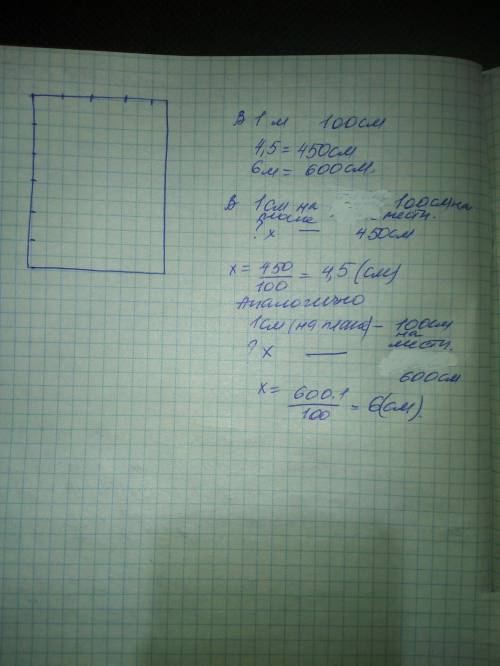 В 1 м 100см
4,5 = 450см
6м = 600см.
В 1см на плане 100см на мести.
? х — 450см
х = 450/100 = 4,5 (см)
Аналогично
1см (на плане) – 100см на мести.
? х — 600см
х = 600·1/100 = 6(см).